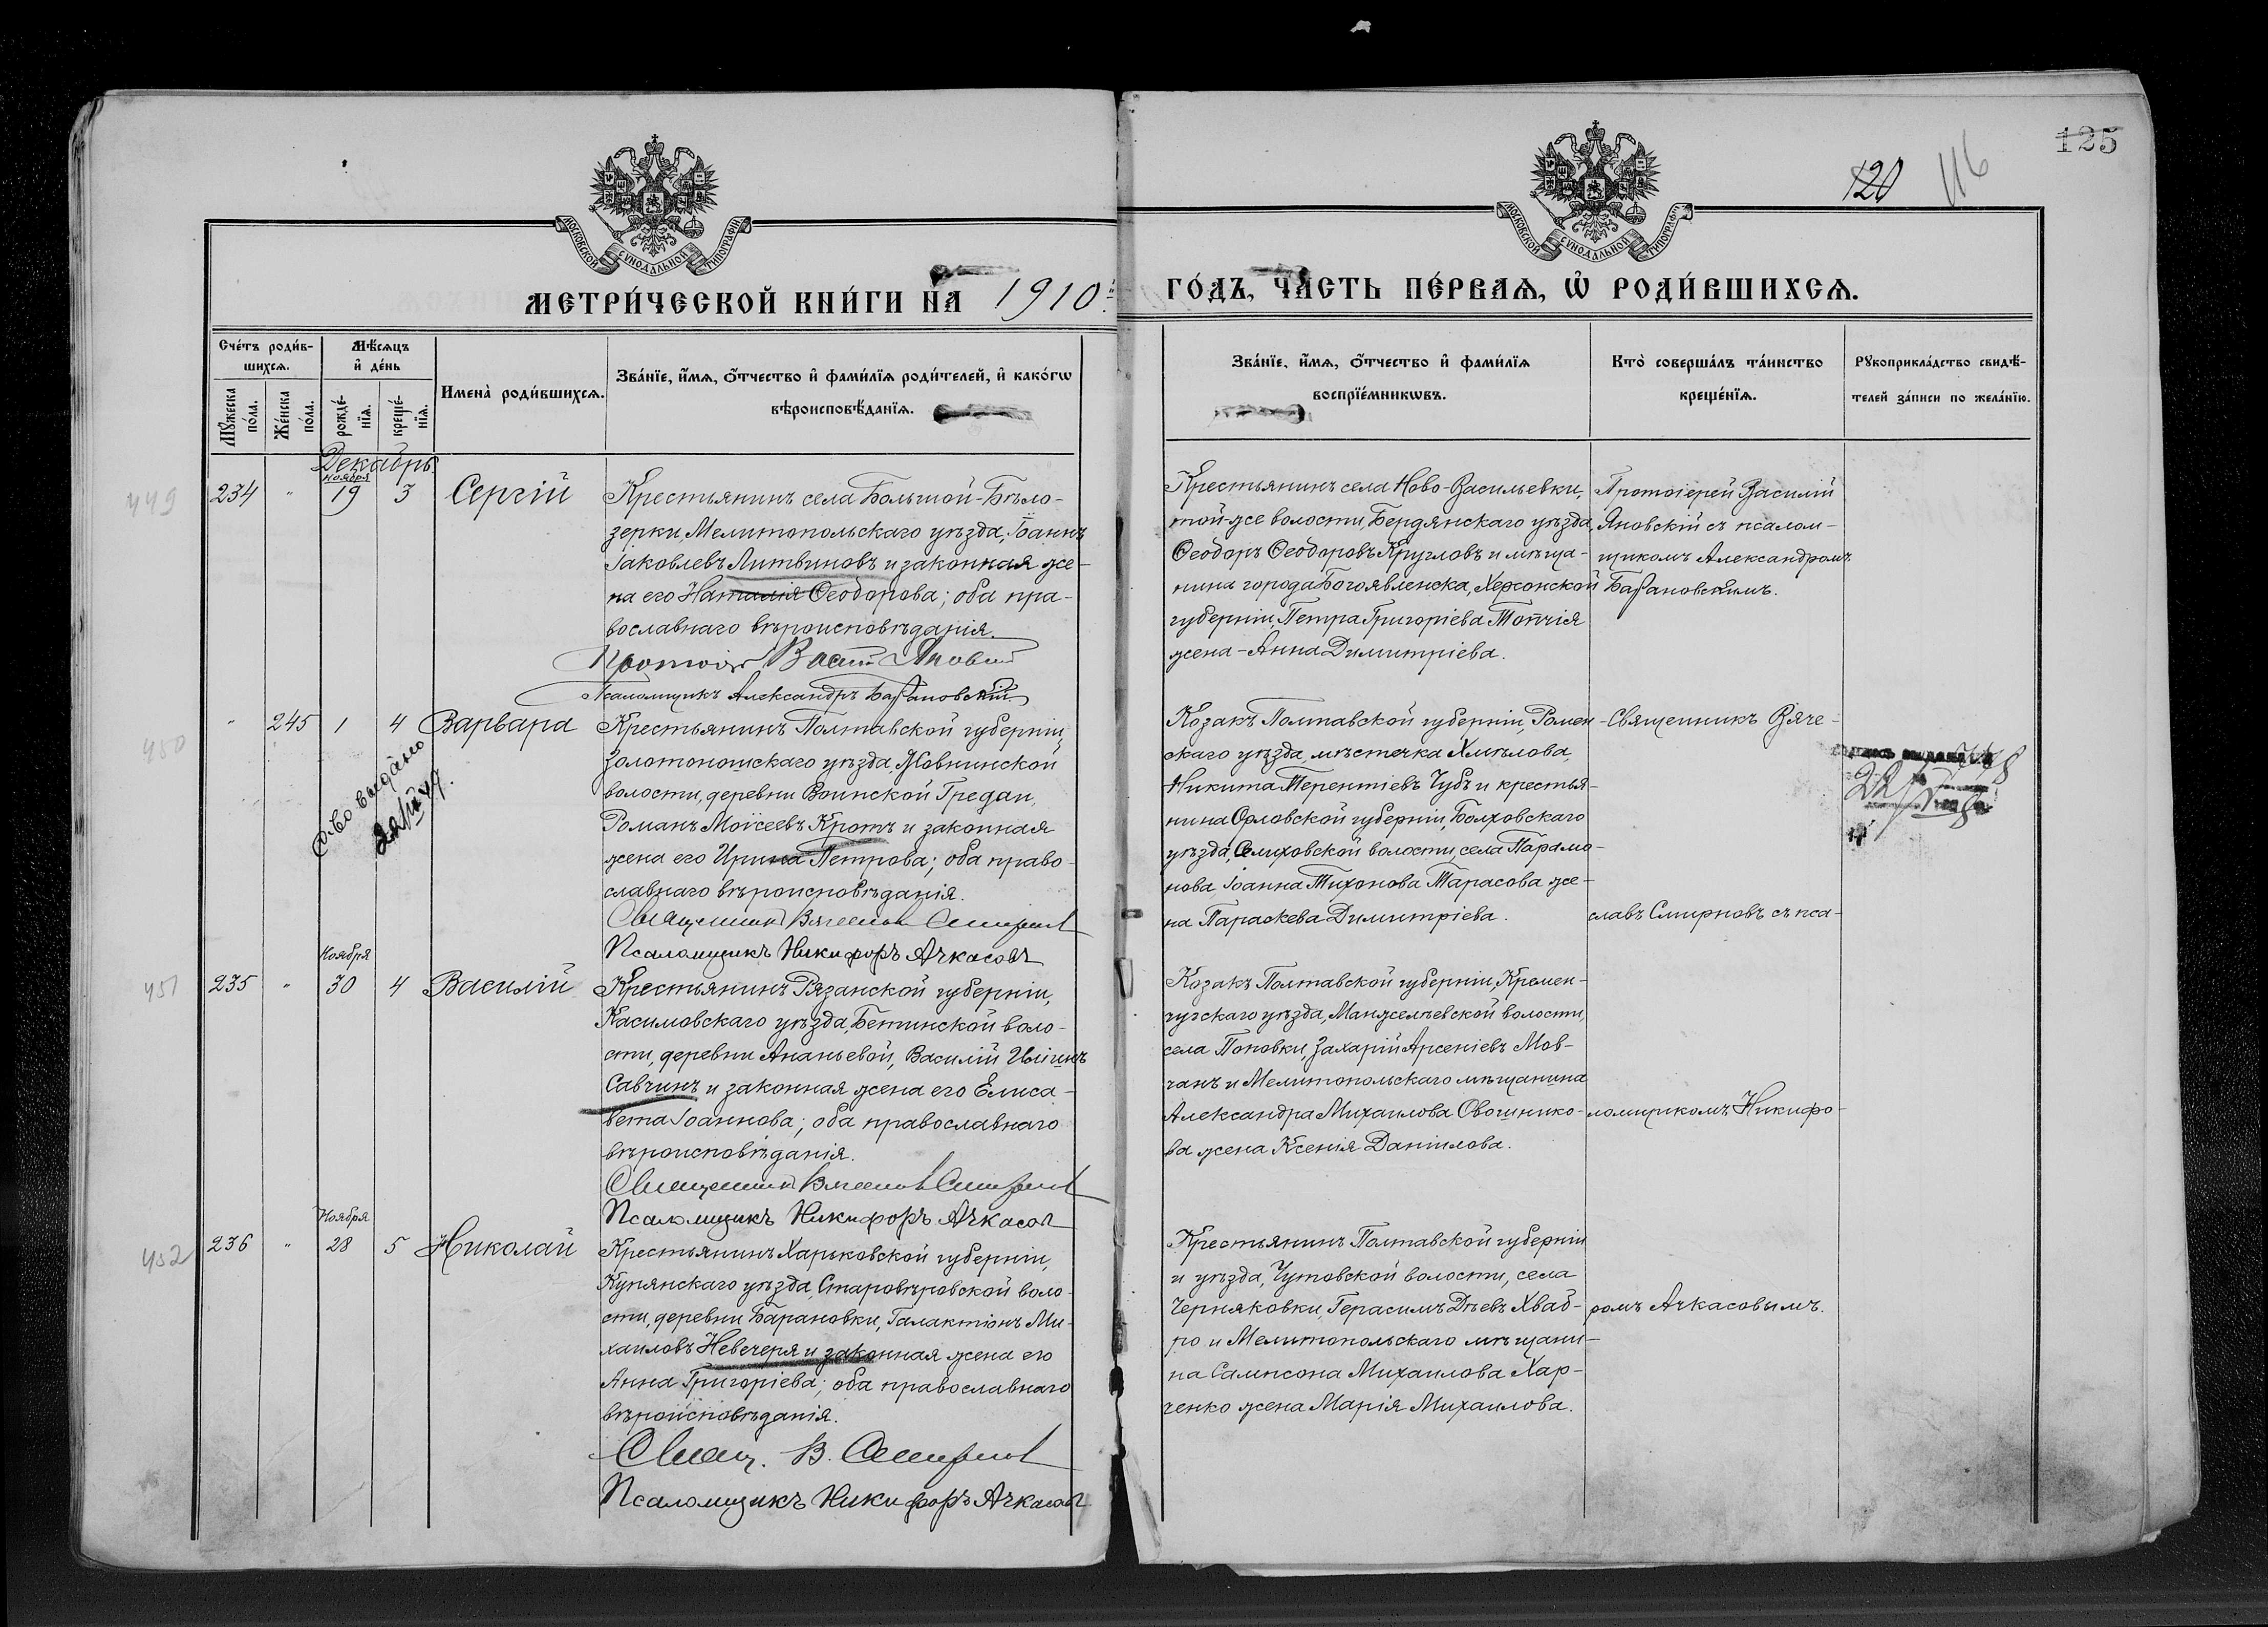 125
120
116
МОСКОВСКОЙ СУНОДАЛЬНОЙ ТИПОГРАФІИ
МОСКОВСКОЙ СУНОДАЛЬНОЙ ТИПОГРАФІИ
МЕТРИ́ЧЕСКОЙ КНИ́ГИ НА 1910.
ГО́ДЪ, ЧА́СТЬ ПЕ́РВАѦ, Ѽ РОДИ́ВШИХСѦ.
Сче́тъ роди́в-
шихсѧ.
Мꙋжеска
по́ла.
Же́нска
по́ла.
Мѣ́сѧцъ
и҆ де́нь
рожде́-
нїѧ.
креще́-
нїѧ.
Имена̀ роди́вшихсѧ.
Зва́нїе, и҆́мѧ, ѻ҆́тчество и҆ фами́лїѧ роди́телей, и҆ како́гѡ
вѣроисповѣ́данїѧ.
Зва́нїе, и҆́мѧ, ѻ҆́тчество и҆ фами́лїѧ
воспрїе́мникѡвъ.
Кто̀ соверша́лъ та́инство
креще́нїѧ.
Рꙋкоприкла́дство свидѣ́-
телей за́писи по жела́нїю.
Декабрь
449
234 " ноября 19 3 Сергій
Крестьянинъ села Большой-Бѣло-
зерки, Мелитопольскаго уѣзда, Іоаннъ
Іаковлевъ Литвиновъ и законная же-
на его Наталія Ѳеодорова; оба пра-
вославнаго вѣроисповѣданія.
Псаломщикъ Александръ Барановскій
Крестьянинъ села Ново-Васильевки,
той-же волости, Бердянскаго уѣзда,
Ѳеодоръ Ѳеодоровъ Кругловъ и мѣща-
нина города Богоявленска, Херсонской
губерніи, Петра Григоріева Топчія
жена - Анна Димитріева.
Протоіерей Василій
Яновскій съ псалом-
щикомъ Александромъ
Барановскимъ.
450
" 245 1 4 Варвара
выдано
Крестьянинъ Полтавской губерніи,
Золотоношскаго уѣзда, Жовнинской
волости, деревни Воинской Гредаи,
Романъ Моѵсеевъ Кротъ и законная
жена его Ирина Петрова; оба право-
славнаго вѣроисповѣданія.
Священникъ Вячеславъ Смирновъ
Псаломщикъ Никифоръ Ачкасовъ
Козакъ Полтавской губерніи, Ромен-
скаго уѣзда, мѣстечка Хмѣлова,
Никита Терентіевъ Чубъ и крестья-
нина Орловской губерніи, Болховскаго
уѣзда, Селиховской волости, села Парамо-
нова Іоанна Тихонова Тарасова же-
на Параскева Димитріева.
Священникъ Вяче-
славъ Смирновъ съ пса-
451
235 " Ноября 30 4 Василій
Крестьянинъ Рязанской губерніи,
Касимовскаго уѣзда, Бетинской воло-
сти, деревни Ананьевой, Василій Иліинъ
Савчинъ и законная жена его Елиса-
вета Іоаннова; оба православнаго
вѣроисповѣданія.
Священникъ Вячеславъ Смирновъ
Псаломщикъ Никифоръ Ачкасовъ
Козакъ Полтавской губерніи, Кремен-
чугскаго уѣзда, Манжелѣевской волости,
села Поповки, Захарій Арсеніевъ Мов-
чанъ и Мелитопольскаго мѣщанина
Александра Михаилова Овчинико-
ва жена Ксенія Даніилова.
ломщикомъ Никифо-
452
236 " Ноября 28 5 Николай
Крестьянинъ Харьковской губерніи,
Купянскаго уѣзда, Старовѣровской воло-
сти, деревни Барановки, Галактіонъ Ми-
хаиловъ Невечеря и законная жена его
Анна Григоріева; оба православнаго
вѣроисповѣданія.
Свящ. В. Смирновъ
Псаломщикъ Никифоръ Ачкасовъ
Крестьянинъ Полтавской губерніи
и уѣзда, Чутовской волости, села
Черняковки, Герасимъ Діевъ Хваб-
ро и Мелитопольскаго мѣщани-
на Сампсона Михаилова Хар-
ченко жена Марія Михаилова.
ромъ Ачкасовымъ.